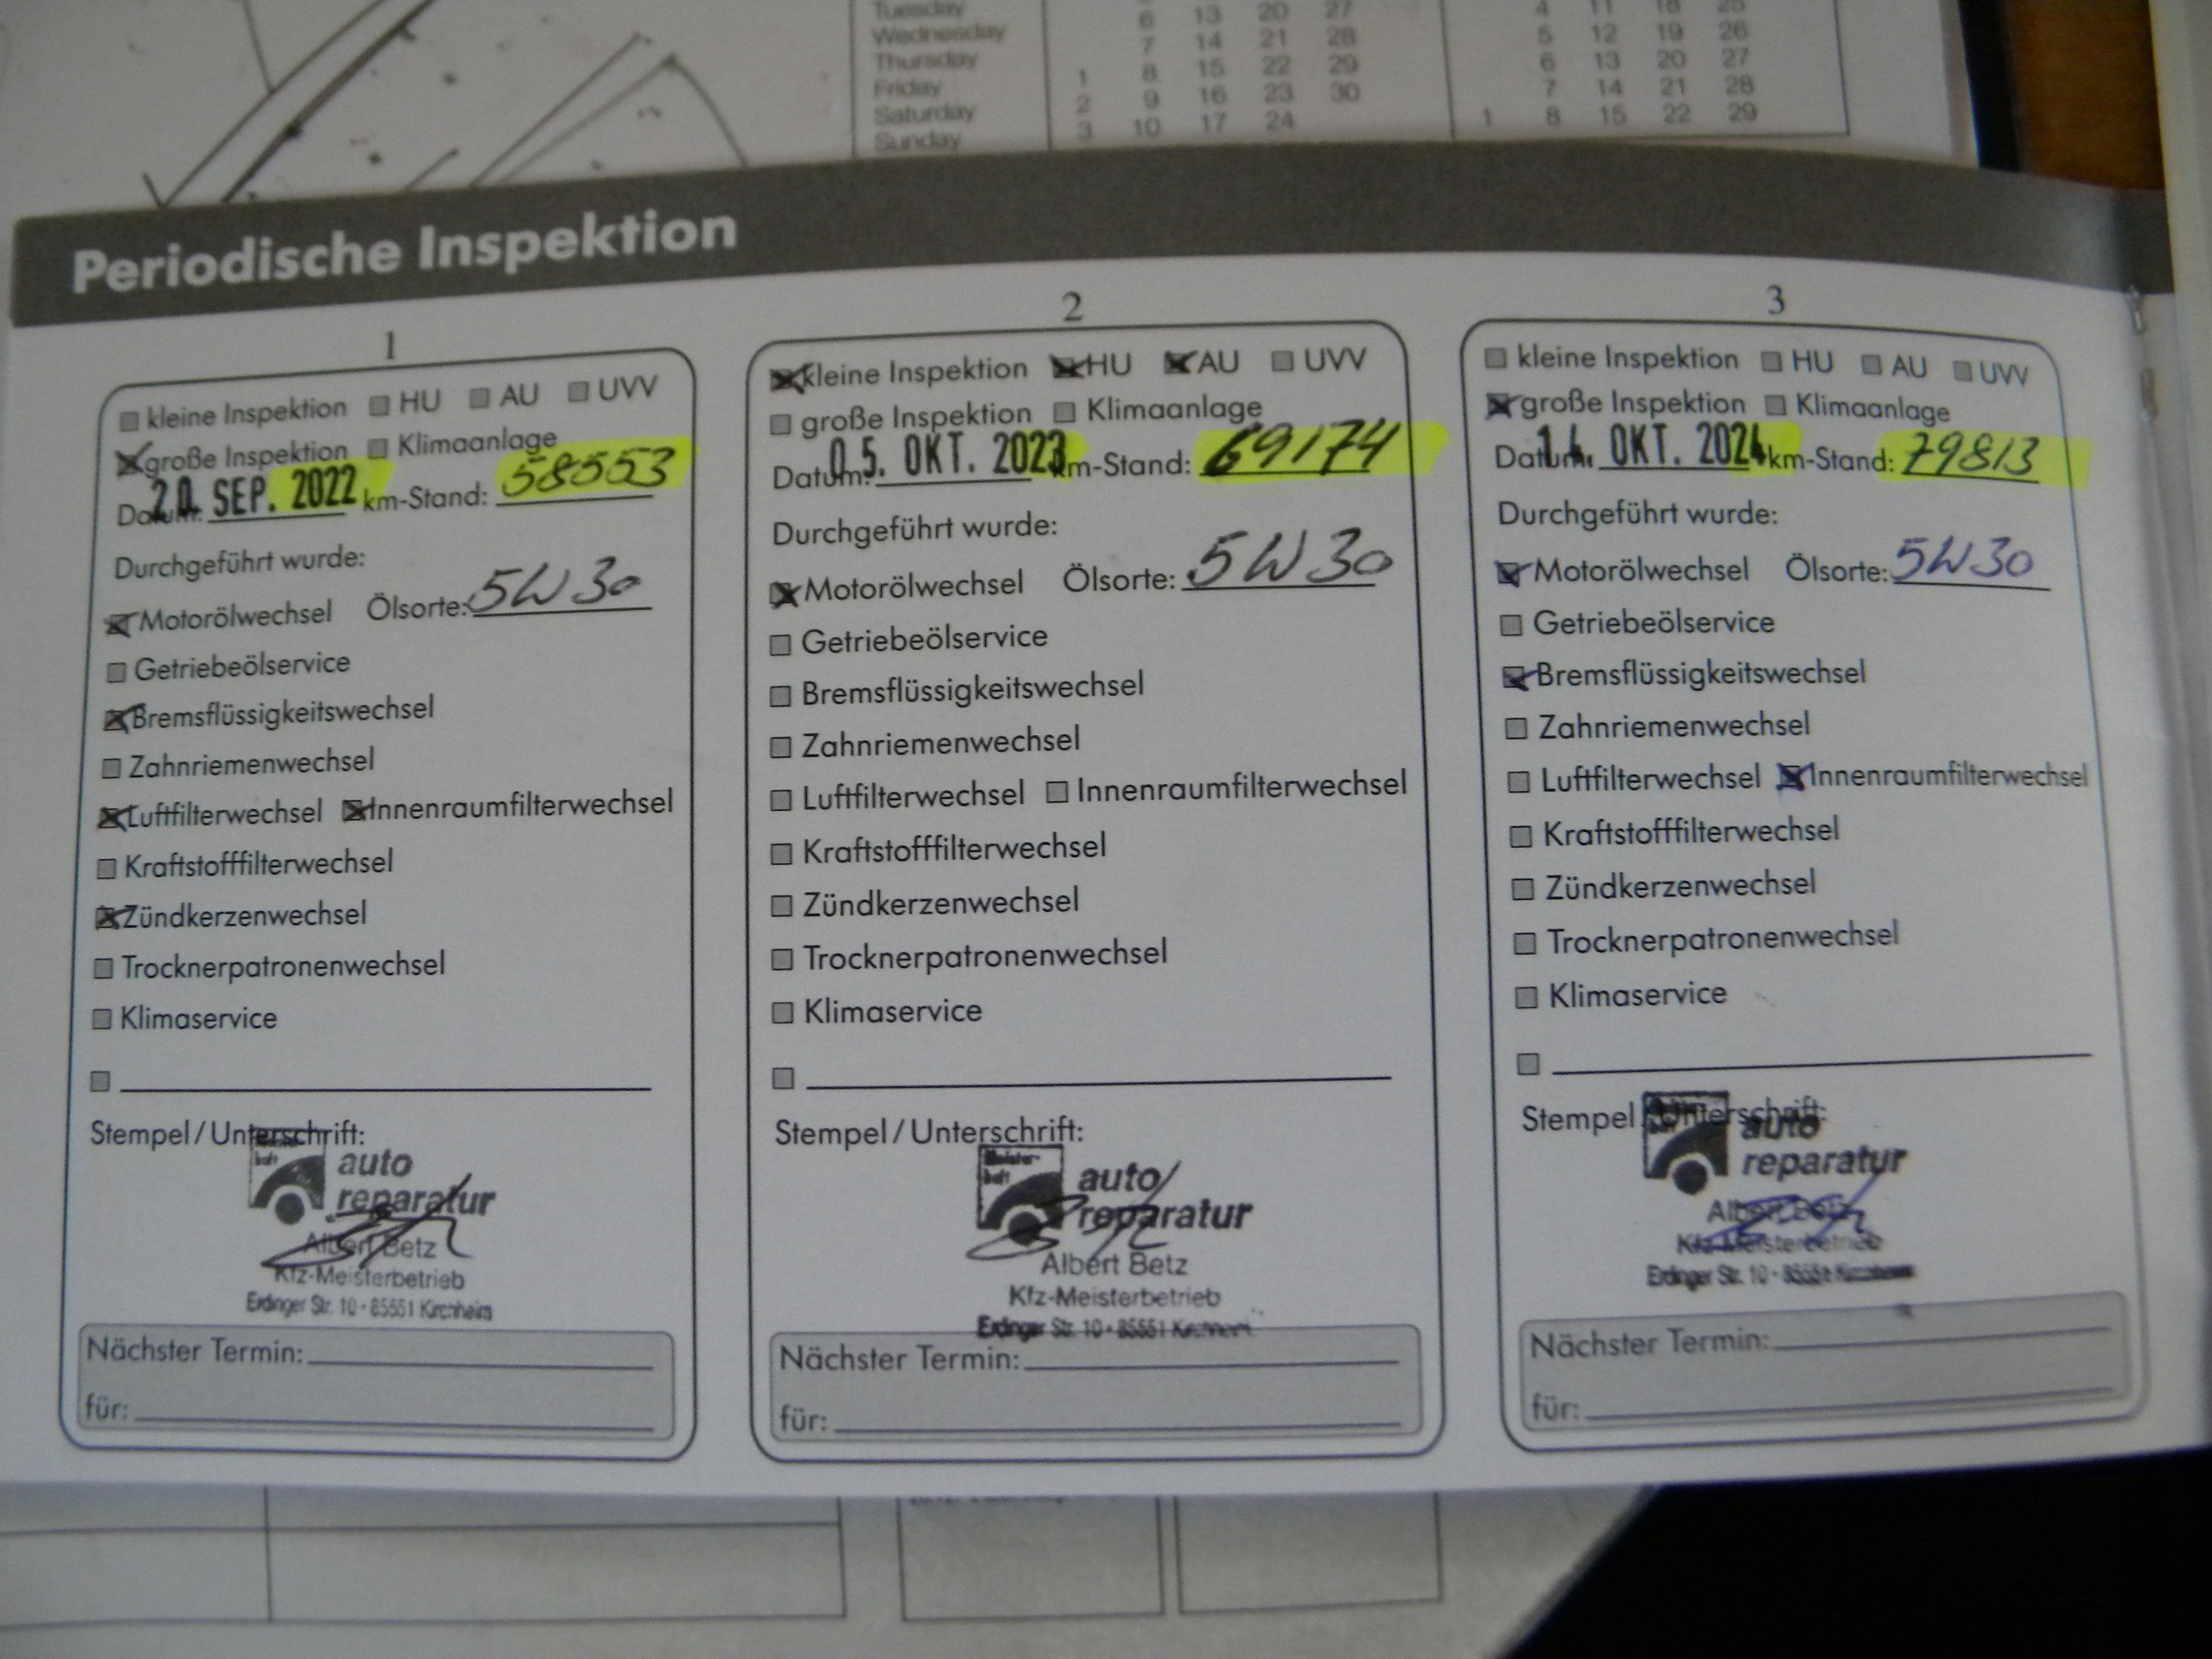 Tuesday 6 13 20 27 4 11 18 25
Wednesday 7 14 21 28 5 12 19 26
Thursday 1 8 15 22 29 6 13 20 27
Friday 2 9 16 23 30 7 14 21 28
Saturday 3 10 17 24 1 8 15 22 29
Sunday
Periodische Inspektion
1
kleine Inspektion HU AU UVV
große Inspektion Klimaanlage
Datum: 20. SEP. 2022 km-Stand: 58553
Durchgeführt wurde:
Motorölwechsel Ölsorte: 5W30
Getriebeölservice
Bremsflüssigkeitswechsel
Zahnriemenwechsel
Luftfilterwechsel Innenraumfilterwechsel
Kraftstofffilterwechsel
Zündkerzenwechsel
Trocknerpatronenwechsel
Klimaservice
Stempel/Unterschrift:
auto
reparatur
Albert Betz
Kfz-Meisterbetrieb
Erdinger Str. 10 • 85551 Kirchheim
Nächster Termin:
für:
2
kleine Inspektion HU AU UVV
große Inspektion Klimaanlage
Datum: 05. OKT. 2023 km-Stand: 69174
Durchgeführt wurde:
Motorölwechsel Ölsorte: 5W30
Getriebeölservice
Bremsflüssigkeitswechsel
Zahnriemenwechsel
Luftfilterwechsel Innenraumfilterwechsel
Kraftstofffilterwechsel
Zündkerzenwechsel
Trocknerpatronenwechsel
Klimaservice
Stempel/Unterschrift:
Meister-
haft
auto
reparatur
Albert Betz
Kfz-Meisterbetrieb
Erdinger Str. 10 • 85551 Kirchheim
Nächster Termin:
für:
3
kleine Inspektion HU AU UVV
große Inspektion Klimaanlage
Datum: 14. OKT. 2024 km-Stand: 79813
Durchgeführt wurde:
Motorölwechsel Ölsorte: 5W30
Getriebeölservice
Bremsflüssigkeitswechsel
Zahnriemenwechsel
Luftfilterwechsel Innenraumfilterwechsel
Kraftstofffilterwechsel
Zündkerzenwechsel
Trocknerpatronenwechsel
Klimaservice
Stempel/Unterschrift:
auto
reparatur
Albert Betz
Kfz-Meisterbetrieb
Erdinger Str. 10 • 85551 Kirchheim
Nächster Termin:
für: